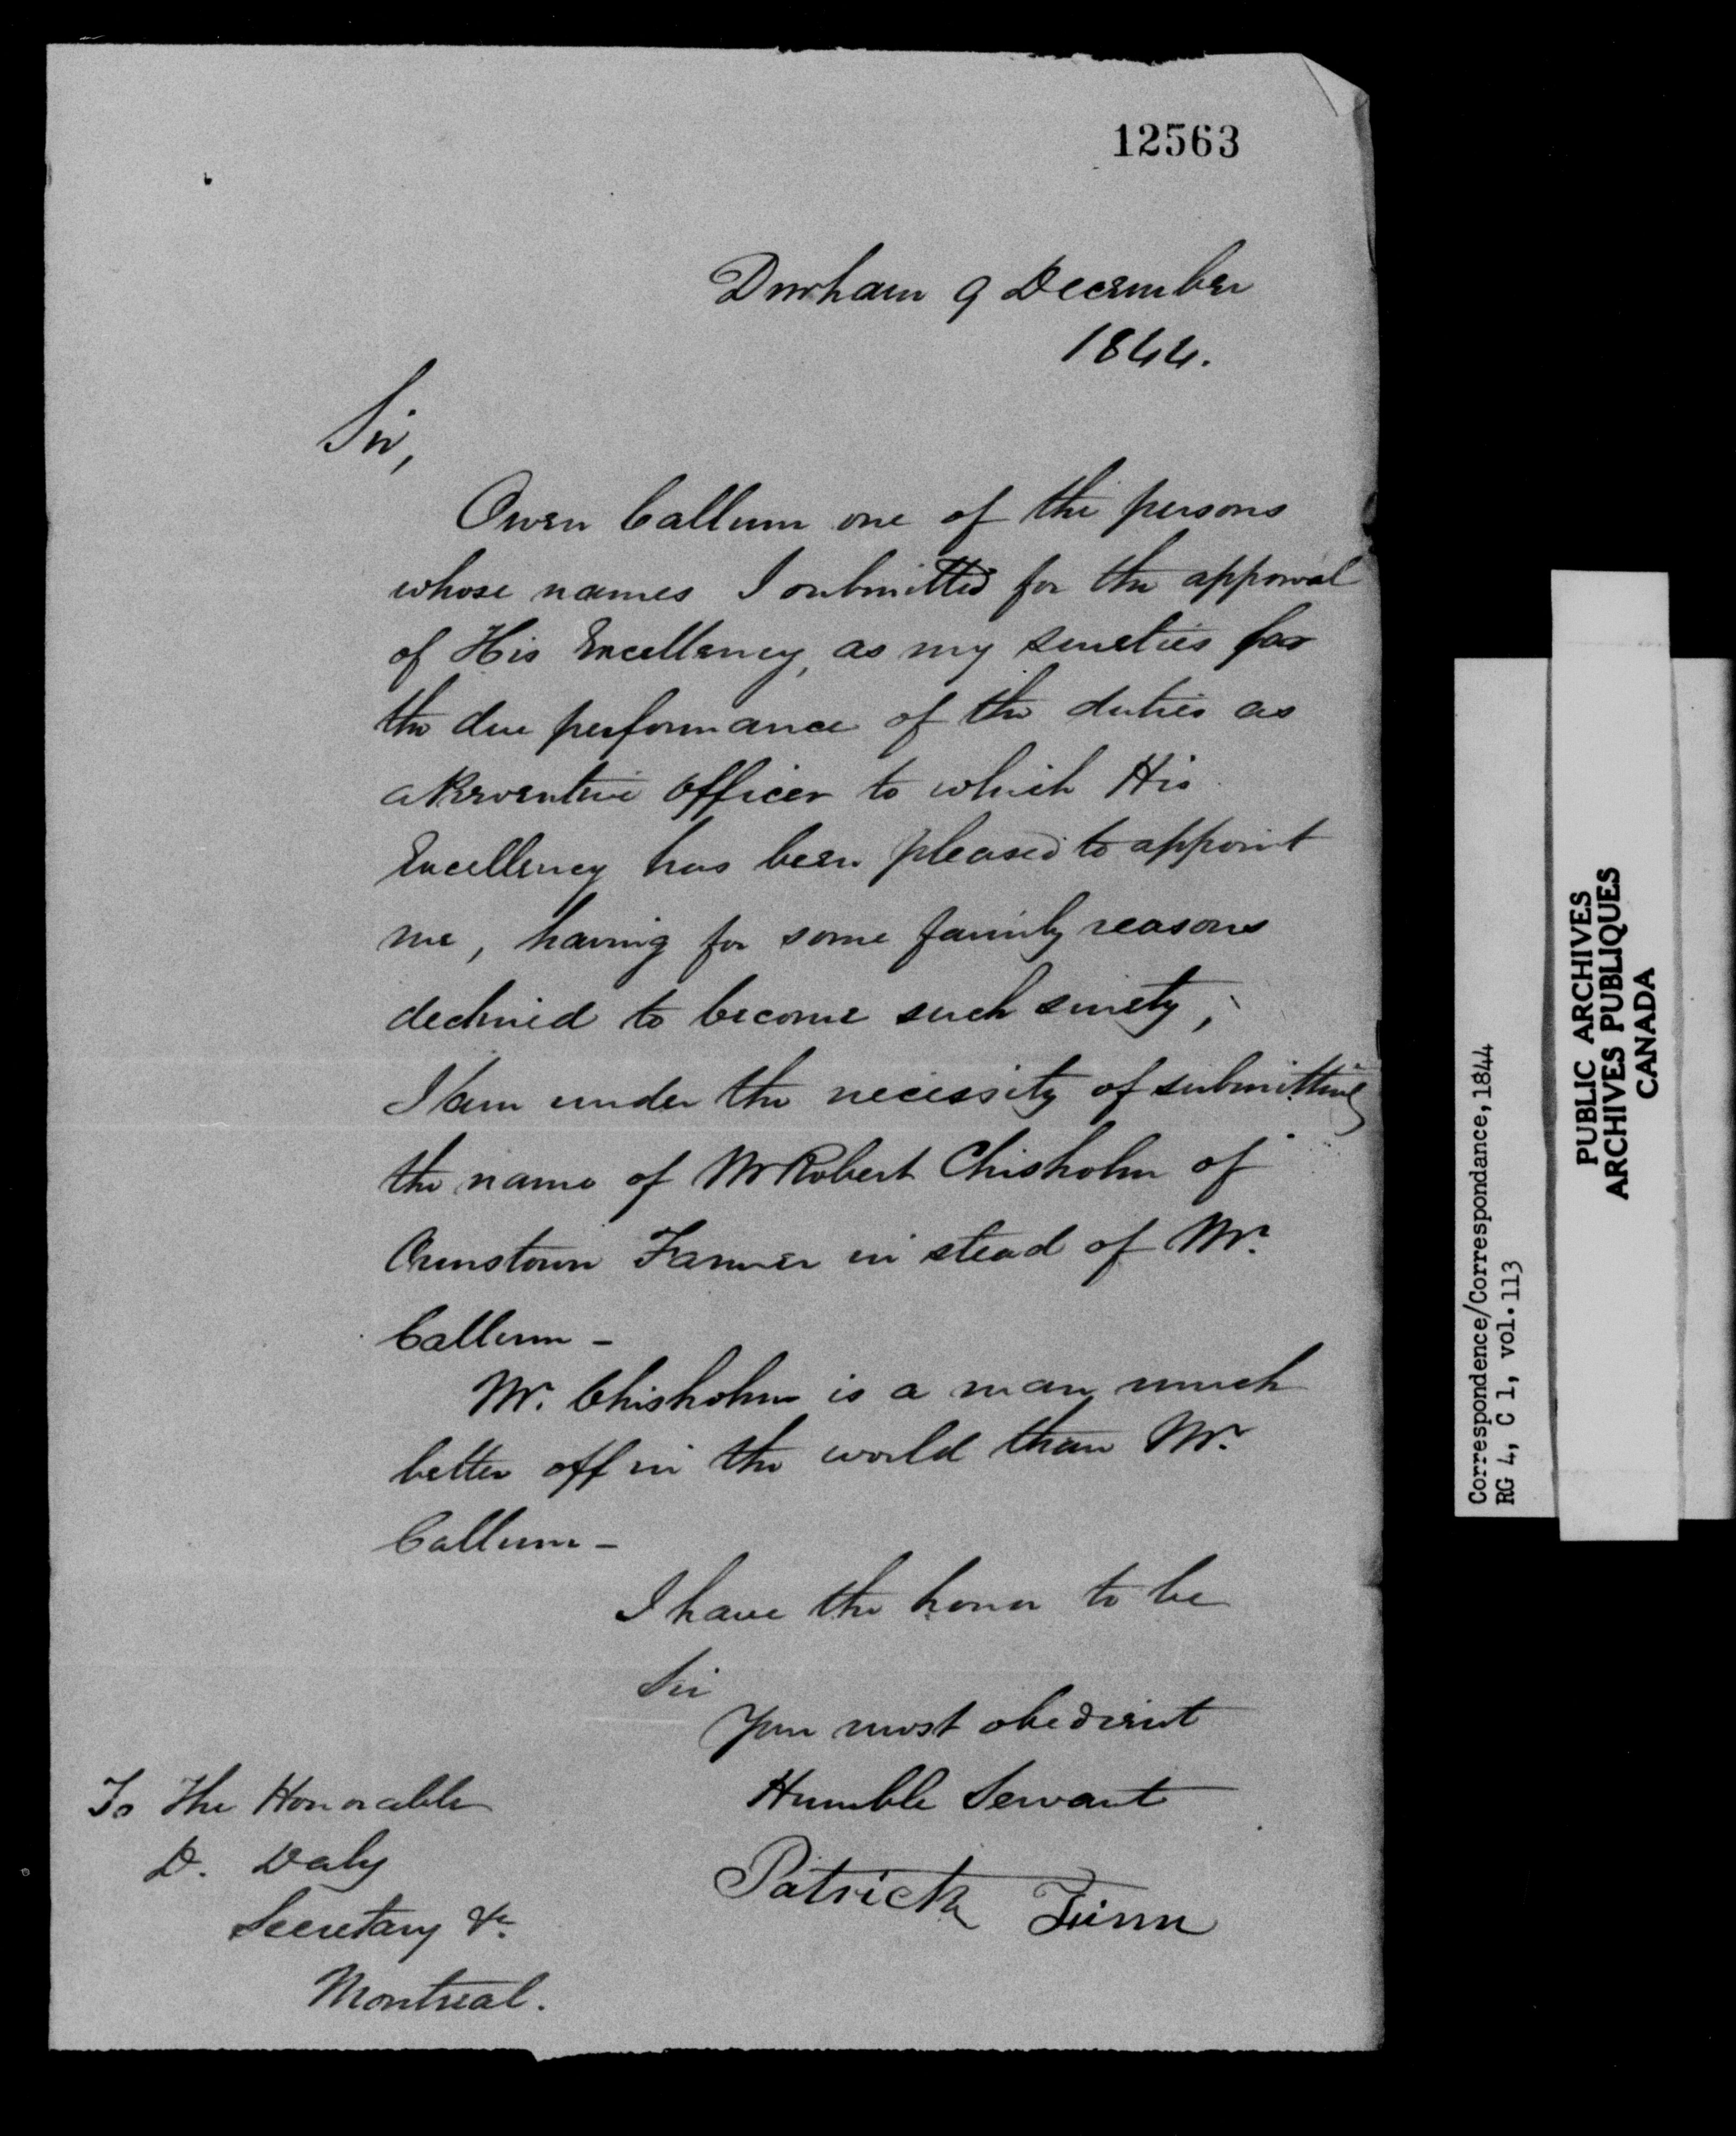 12563
Durham 9 December
1844.
Sir,
Owen Callum one of the persons
whose names I submitted for the approval
of His Excellency, as my sureties for
the due performance of the duties as
a Preventive Officer to which His
Excellency has been pleased to appoint
me, having for some family reasons
declined to become such surety,
I am under the necessity of submitting
the name of Mr Robert Chisholm of
Ormstown Farmer in stead of Mr.
Callum -
Mr. Chisholm is a man much
better off in the world than Mr.
Callum -
I have the honor to be
Sir
Your most obedient
Humble Servant
Patrick Finn
To The Honorable
D. Daly
Secretary &c
Montreal.
Correspondence/Correspondance, 1844
RG 4, C 1, vol. 113
PUBLIC ARCHIVES
ARCHIVES PUBLIQUES
CANADA